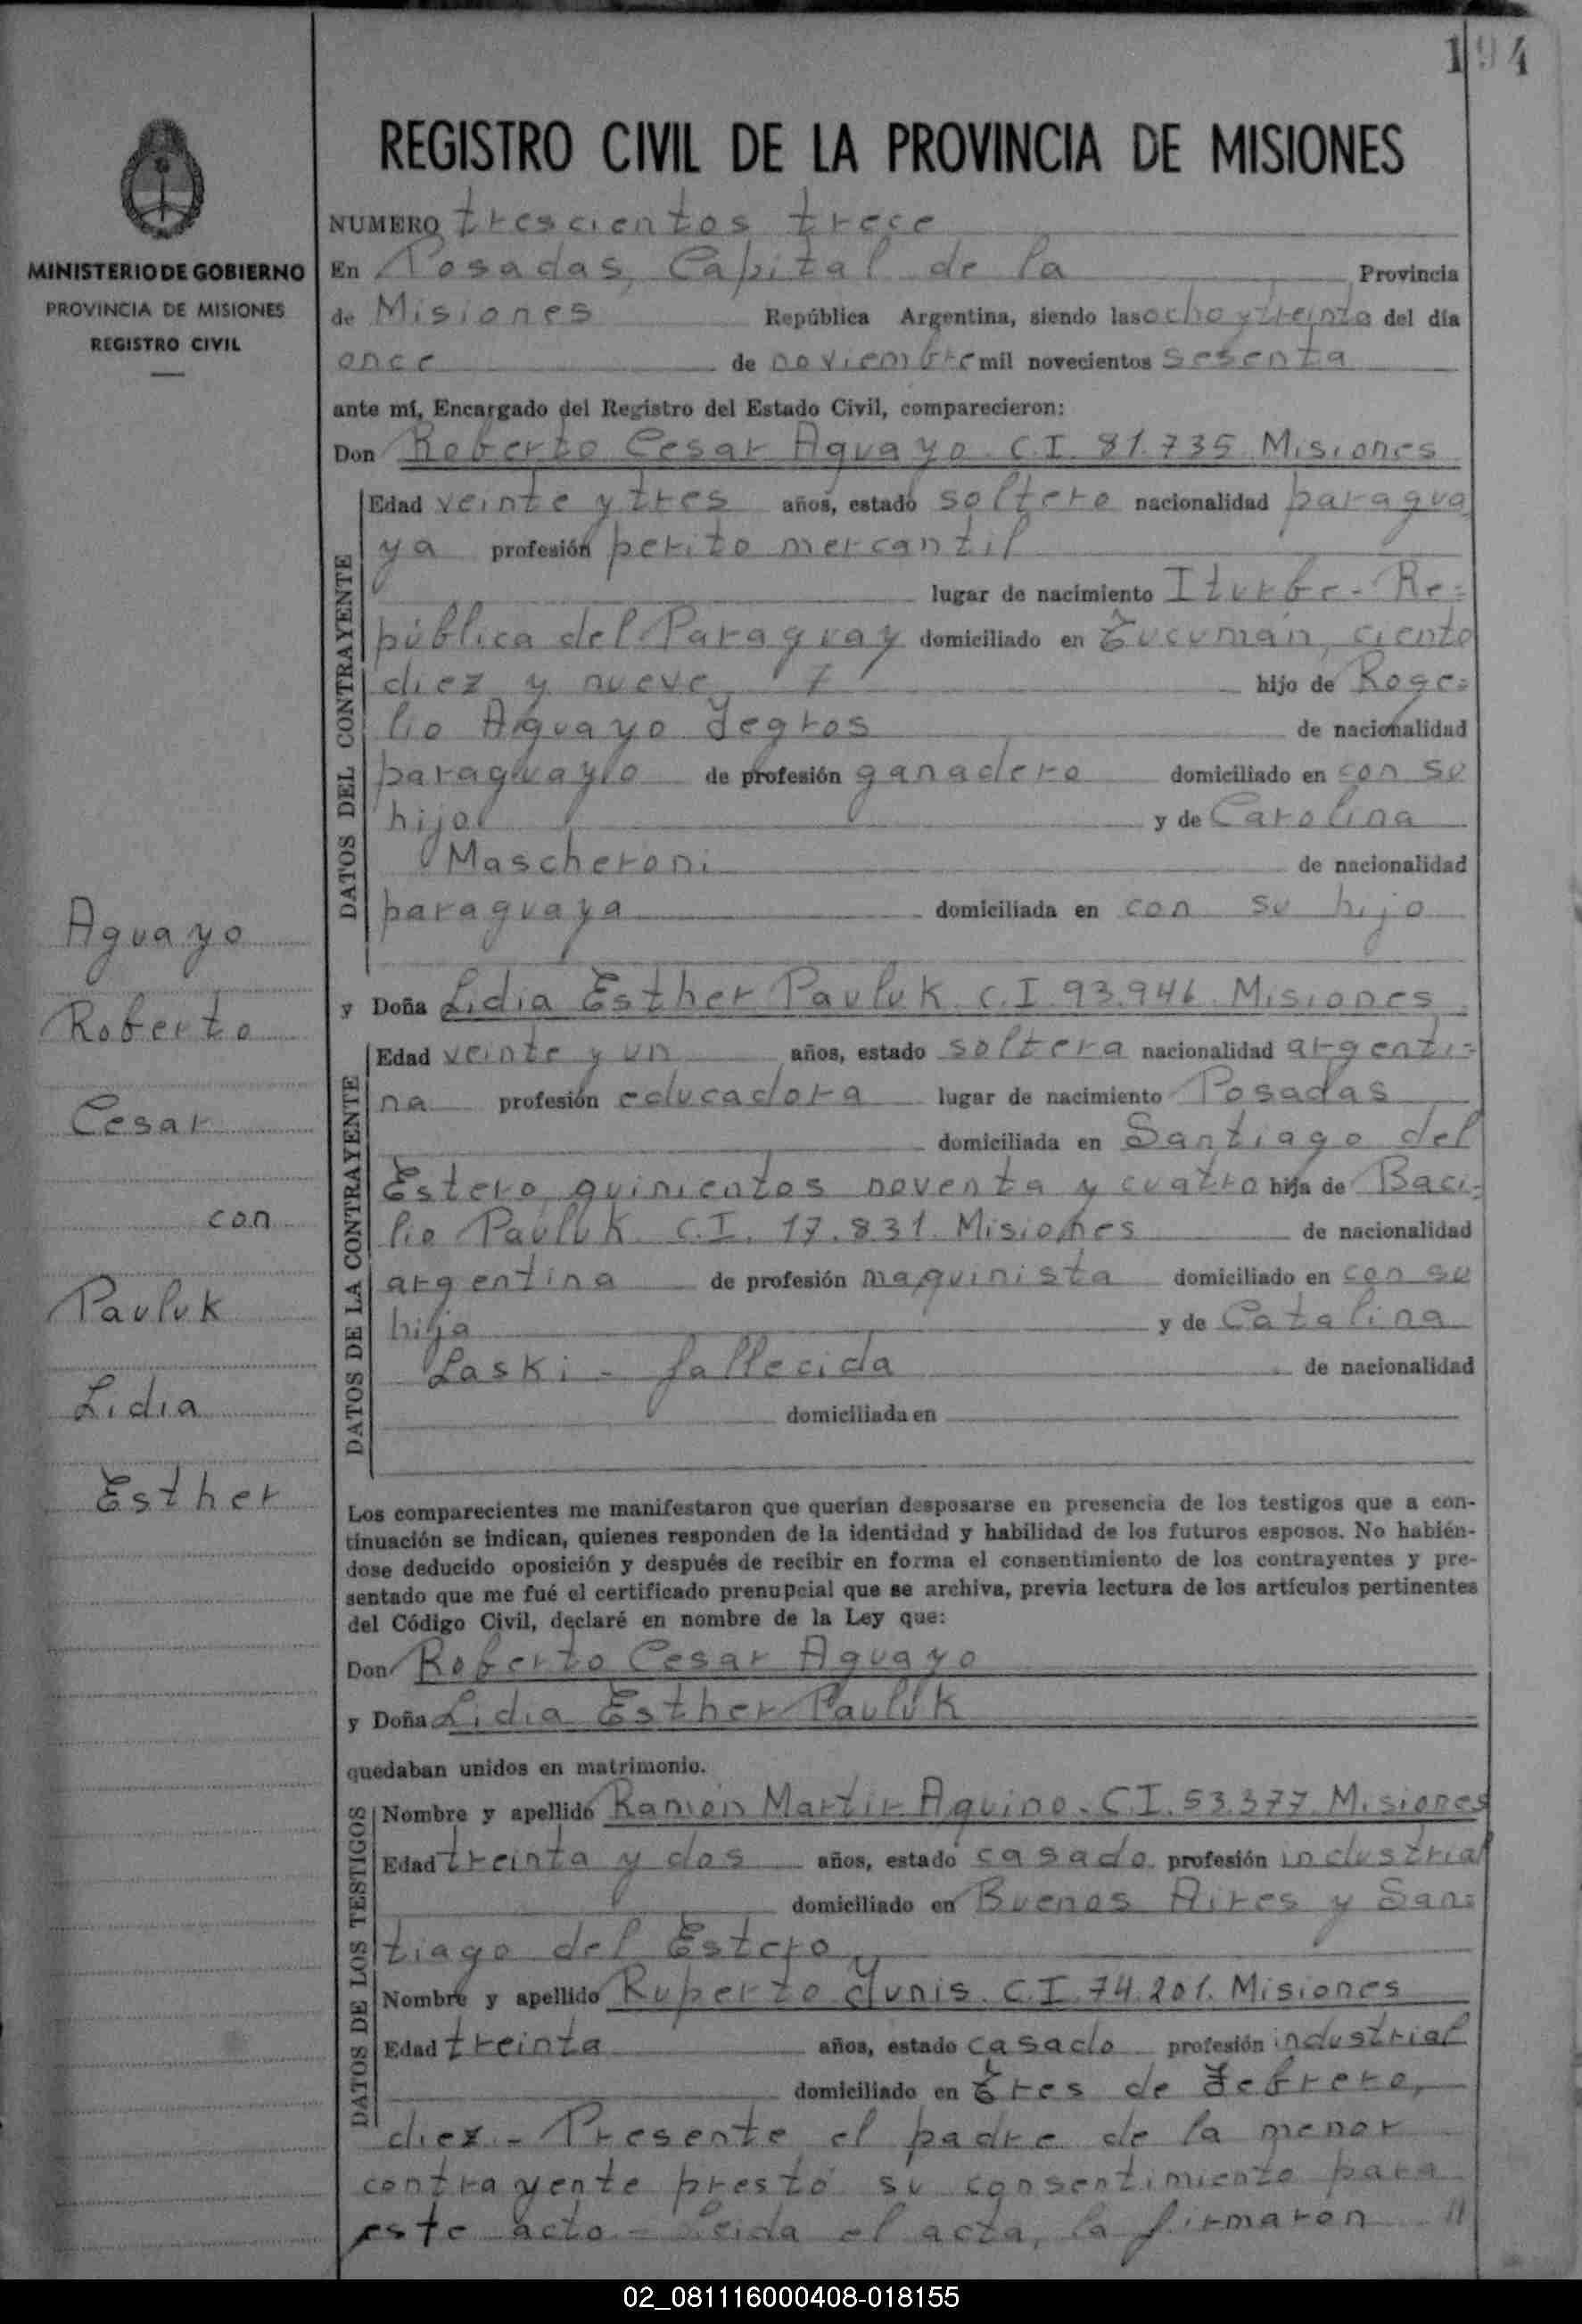 194
REGISTRO CIVIL DE LA PROVINCIA DE MISIONES
MINISTERIO DE GOBIERNO
PROVINCIA DE MISIONES
REGISTRO CIVIL
NUMERO trescientos trece
En Posadas, Capital de la Provincia
de Misiones República Argentina, siendo las ocho y treinta del día
once de noviembre mil novecientos sesenta
ante mí, Encargado del Registro del Estado Civil, comparecieron:
Don Roberto Cesar Aguayo. C.I. 81.735 Misiones
DATOS DEL CONTRAYENTE
Edad veinte y tres años, estado soltero nacionalidad paragua
ya profesión perito mercantil
lugar de nacimiento Iturbe - Re=
pública del Paraguay domiciliado en Tucumán, ciento
diez y nueve hijo de Roge=
lio Aguayo Yegros de nacionalidad
paraguayo de profesión ganadero domiciliado en con su
hijo y de Carolina
Mascheroni de nacionalidad
paraguaya domiciliada en con su hijo
y Doña Lidia Esther Pauluk C.I. 93.946 Misiones
DATOS DE LA CONTRAYENTE
Edad veinte y un años, estado soltera nacionalidad argenti=
na profesión educadora lugar de nacimiento Posadas
domiciliada en Santiago del
Estero, quinientos noventa y cuatro hija de Baci=
lio Pauluk C.I. 17.831 Misiones de nacionalidad
argentina de profesión maquinista domiciliado en con su
hija y de Catalina
Laski - fallecida de nacionalidad
domiciliada en
Los comparecientes me manifestaron que querían desposarse en presencia de los testigos que a con-
tinuación se indican, quienes responden de la identidad y habilidad de los futuros esposos. No habién-
dose deducido oposición y después de recibir en forma el consentimiento de los contrayentes y pre-
sentado que me fué el certificado prenupcial que se archiva, previa lectura de los artículos pertinentes
del Código Civil, declaré en nombre de la Ley que:
Don Roberto Cesar Aguayo
y Doña Lidia Esther Pauluk
quedaban unidos en matrimonio.
DATOS DE LOS TESTIGOS
Nombre y apellido Ramón Martir Aquino. C.I. 53.377 Misiones
Edad treinta y dos años, estado casado profesión industrial
domiciliado en Buenos Aires y San=
tiago del Estero
Nombre y apellido Ruperto Yunis. C.I. 74.201. Misiones
Edad treinta años, estado casado profesión industrial
domiciliado en Tres de Febrero,
diez - Presente el padre de la menor
contrayente prestó su consentimiento para
este acto - Leida el acta, la firmaron //
Aguayo
Roberto
Cesar
con
Pauluk
Lidia
Esther
02_081116000408-018155